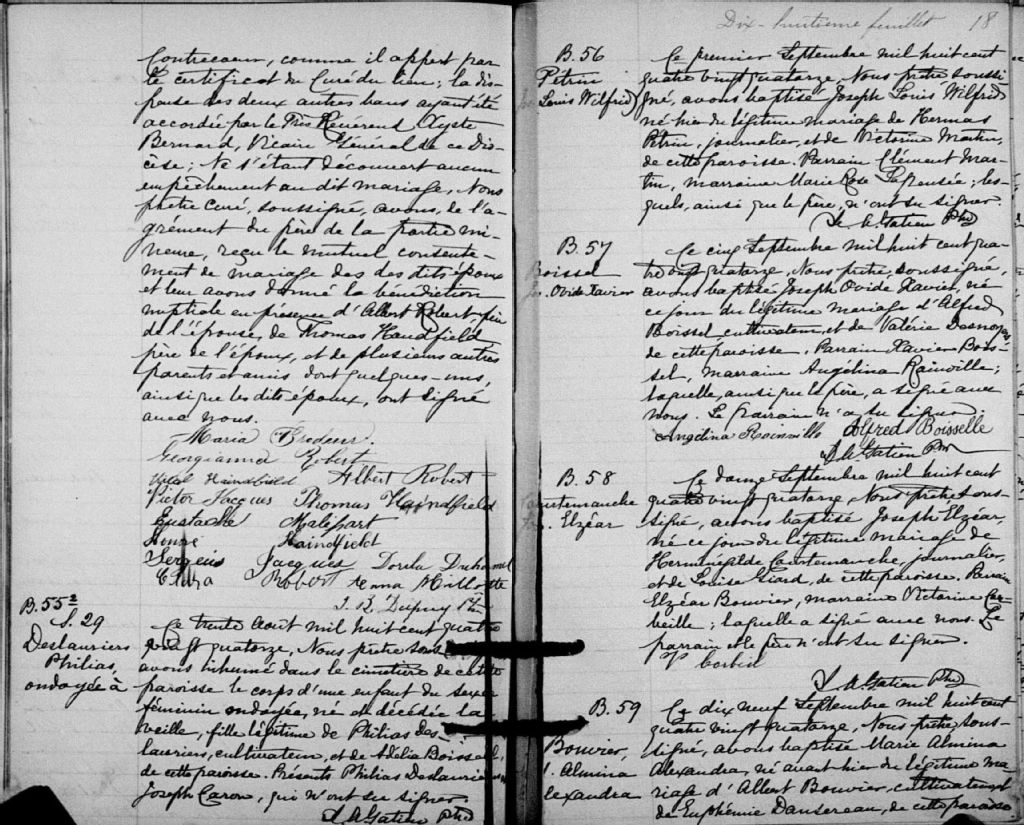 Contrecoeur, comme il appert par
le certificat du Curé du lieu; la dis-
pense des deux autres bans ayant été
accordée par le Très Révérend Xyste
Bernard, Vicaire Général de ce Dio-
cèse; Ne s'étant découvert aucun
empêchement au dit mariage, Nous
prêtre curé, soussigné, avons, de l'a-
grément du père de la partie mi-
neure, reçu le mutuel consente-
ment de mariage des dits époux
et leur avons donné la bénédiction
nuptiale en présence d'Albert Robert,
de l'épouse, de Thomas Handfield
père de l'époux, et de plusieurs autres
parents et amis dont quelques-uns,
ainsi que les dits époux, ont signé
avec nous.
Maria Brodeur.
Georgianna Robert
Handfield Albert Robert
Victor Jacques Thomas Haindfield
Eustache Malepart
Haindfield
Jacques Dorila Duhamel
Robert Anna Millette
J. B. Dupuy Ptre
B. 55
S. 29
Deslauriers
Philias,
ondoyée à
Ce trente Août mil huit cent quatre
vingt quatorze, Nous prêtre
avons inhumé dans le cimetière de cette
paroisse le corps d'une enfant du sexe
féminin ondoyée, né et décédée la
veille, fille légitime de Philias des-
lauriers, cultivateur, et de Adélia Boissel,
de cette paroisse. Présents Philias Deslauriers
Joseph Caron, qui n'ont su signer.
L. A. Gatien Ptre
Dix-huitième feuillet 18
B. 56
Pétrin
Louis Wilfrid
Ce premier Septembre mil huit cent
quatre vingt quatorze, Nous prêtre soussi
gné, avons baptisé Joseph Louis Wilfrid
né hier du légitime mariage de Hermas
Petrin, journalier, et de Victorine Martin,
de cette paroisse. Parrain Clément Mar-
tin, marraine Marie Rose Lapensée; les-
quels, ainsi que le père, n'ont su signer
L. A. Gatien Ptre
B. 57
Boissel
Jos. Ovide Xavier
Ce cinq Septembre mil huit cent qua-
tre vingt quatorze, Nous prêtre, soussigné,
avons baptisé Joseph Ovide Xavier, né
ce jour du légitime mariage d'Alfred
Boissel cultivateur, et de Valérie Desnoyers
de cette paroisse. Parrain Xavier Bois-
sel, marraine Angelina Rainville;
laquelle, ainsi que le père, a signé avec
nous. Le parrain n'a su signer.
Angelina Rainville Alfred Boisselle
L. A. Gatien Ptre
B. 58
Courtemanche
Jos. Elzéar
Ce douze Septembre mil huit cent
quatre vingt quatorze, Nous prêtre sous-
signé, avons baptisé Joseph Elzéar,
né ce jour du légitime mariage de
Herminégilde Courtemanche, journalier,
et de Louise Giard, de cette paroisse. Parrain
Elzéar Bouvier, marraine Victorine Cor-
beille; laquelle a signé avec nous. Le
parrain et le père n'ont su signer.
V corbeil
L. A. Gatien Ptre
B. 59
Bouvier,
M. Almina
Alexandra
Ce dix neuf Septembre mil huit cent
quatre vingt quatorze, Nous prêtre, sous-
signé, avons baptisé Marie Almina
Alexandra, né avant hier du légitime ma-
riage d'Albert Bouvier, cultivateur, et
de Euphémie Dansereau, de cette paroisse.